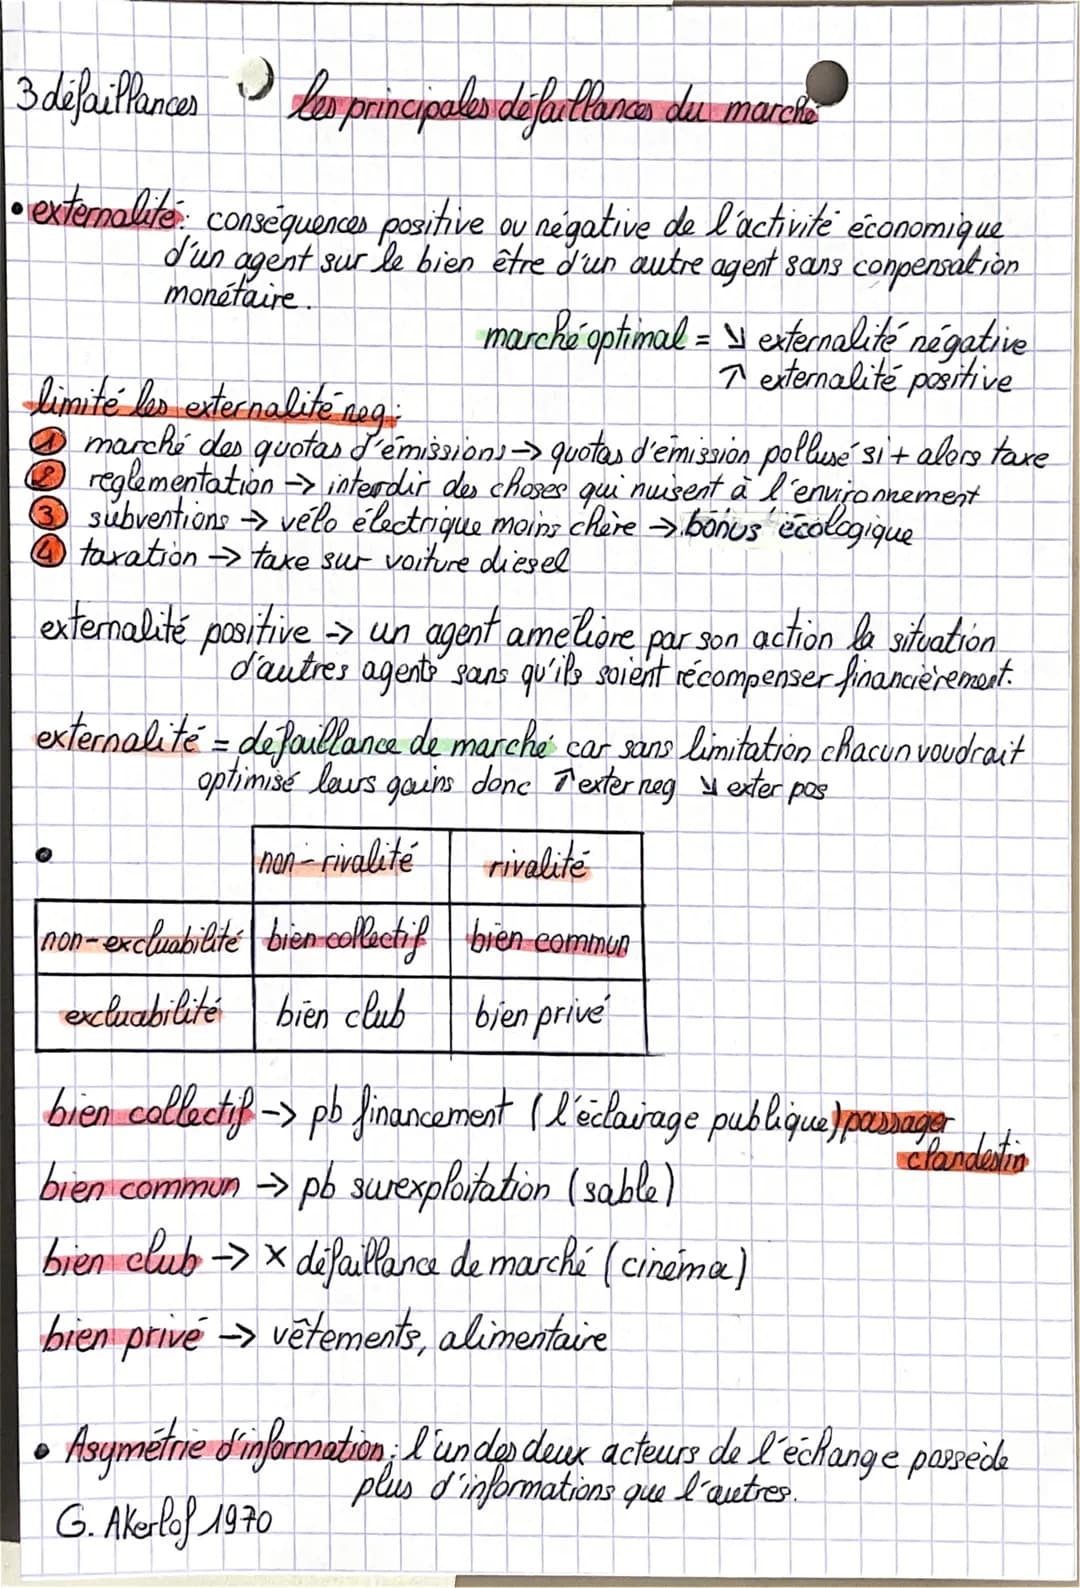 3 défaillances
les principales défaillances du marché
• externalité: conséquences positive ou négative de l'activité économique
d'un agent sur le bien être d'un autre agent sans conpensation
monétaire.
marché optimal = ↘ externalité négative
↗ externalité positive
limité les externalité neg:
1 marché des quotas d'émissions → quotas d'émission polluse si + alors taxe
2 reglementation → interdir des choses qui nuisent à l'environnement
3 subventions → vélo électrique moins chère → bonus écologique
4 taxation → taxe sur voiture diesel
externalité positive → un agent ameliore par son action la situation
d'autres agents sans qu'ils soient récompenser financièrement.
externalité = défaillance de marché car sans limitation chacun voudrait
optimisé leurs gains donc ↗ exter neg ↘ exter pos
• non-rivalité rivalité
non-excluabilité bien collectif bien commun
excluabilité bien club bien privé
bien collectif → pb financement (l'éclairage publique) passager
clandestin
bien commun → pb surexploitation (sable)
bien club → x défaillance de marché (cinéma)
bien privé → vêtements, alimentaire
• Asymétrie d'information: l'un des deux acteurs de l'échange possède
plus d'informations que l'autres.
G. Akerlof 1970